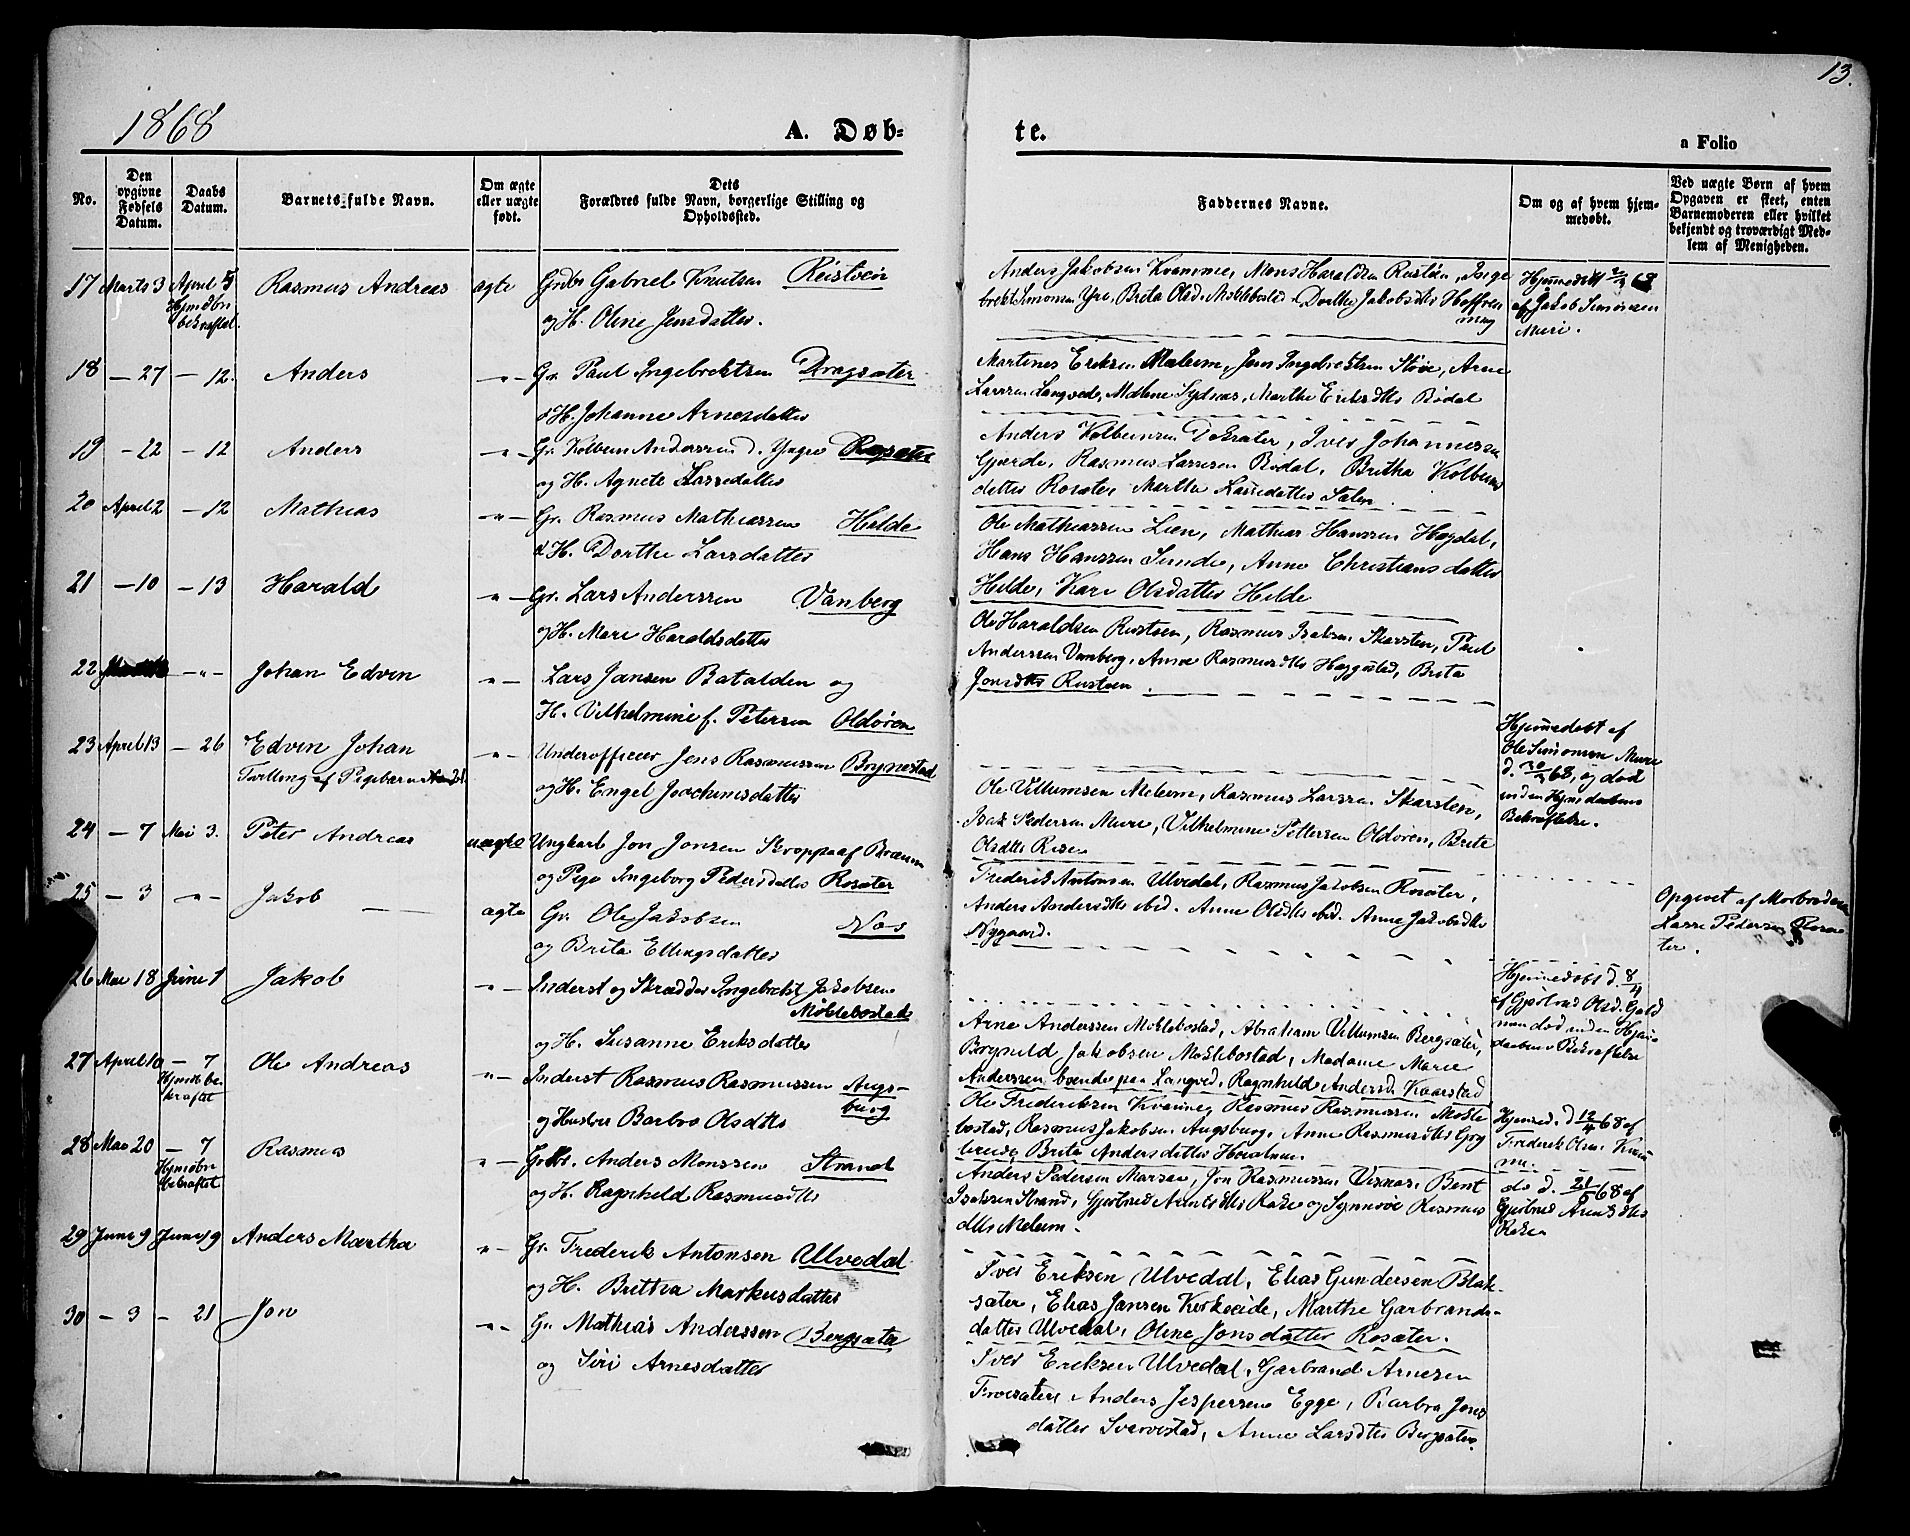 1868
A. Døb-
te.
13.
a Folio
No.
Den opgivne Fødsels Datum.
Daabs Datum.
Barnets fulde Navn.
Om ægte eller uægte født.
Dets Forældres fulde Navn, borgerlige Stilling og Opholdssted.
Faddernes Navne.
Om og af hvem hjemmedøbt.
Ved uægte Børn af hvem Opgaven er skeet, enten Barnemoderen eller hvilket bekjendt og troværdigt Medlem af Menigheden.
17 Marts 3 April 5 Rasmus Andreas ægte Gabriel Knutsen Reistven
Hjmdbn
bekræftet. og H. Oline Jensdatter.
Anders Jakobsen Kvamme, Mons Haraldsen Rustøen, Inge
brekt Simonsen Yre, Brita Olsd. Møklebostad, Dorthe Jakobsdtr
af Jakob Simonsen
Muri.
18 — 27 — 12. Anders — " — Gr. Paul Ingebrektsen Dragsæter
& H. Johanne Arnesdatter
Martines Eriksen Meleim, Jens Ingebrektsen Støve, Arne
Larsen Langved, Malene Sydnæs, Marthe Eriksdtr Bødal
19 — 22 — 12 Anders — " — Gr. Kolbein Anderssen d. Yngre
og H. Agnete Larsedatter
Anders Kolbeinsen Iver Johannessen
Gjærde, Rasmus Larssen Bødal, Britha Kolbeins
datter Rosæter Marthe Larsedatter
20 April 2 — 12 Mathias — " — Gr. Rasmus Mathiassen Hilde
& H. Dorthe Larsdatter
Ole Mathiassen Lien, Mathias Hanssen Hægdal,
Hans Hanssen Sunde, Anne Christiansdatter
Hilde, Kari Olsdatter Hilde
21 — 10 — 13 Harald — " — Gr. Lars Anderssen Vanberg
og H. Mari Haraldsdatter
Ole Haraldsen Rustøen, Rasmus Isaksen Skarsten, Paul
Anderssen Vanberg, Anne Rasmusdtr Heggestad, Brita
Jonsdtr Rustøen.
22 — " — Johan Edvin — " — Lars Jansen Batalden og
H. Vilhelmine f. Petersen Oldøren
23 April 13 — 26 Edvin Johan — " — Underofficer Jens Rasmussen Brynestad
Tvilling af Pigebarn
og H. Engel Jochimsdatter
Ole Villumsen Meleim, Rasmus Larssen Skarsten,
Isak Pedersen Muri, Vilhelmine Pettersen Oldøren, Brite
Olsdtr
Hjemmedøbt af
Ole Simonsen Muri
68, og død
inden Hjemdaabens
Bekræftelse.
24 — 7 Mai 3. Peter Andreas uægte Ungkarl Jon Jonsen
og Pige Ingeborg Pedersdatter Rosæter
Frederik Antonsen Ulvedal, Rasmus Jakobsen Rosæter,
Anders Andersdtr ibid. Anne Olsdtr ibid. Anne Jakobsdtr
Nygaard.
Opgivet af Morbroderen
Larse Pedersen Rosæ
ter.
25 — 3 — " — Jakob ægte Gr. Ole Jakobsen Nos
og Brita Ellingsdatter
Hjemmedøbt d. 8/4
af Gjertrud Olsd.
død inden Hjem-
daabens Bekræftelse
26 Mai 18 Juni 1 Jakob — " — Inderst og Skrædder Ingebrekt Jakobsen
Møklebostad
og H. Susanne Eriksdatter
Arne Anderssen Møklebostad, Abraham Villumsen Bergsæter,
Brynild Jakobsen Møklebostad, Madame Marie
Anderssen boende paa Langved, Ragnhild Andersd. Kaarstad
27 April 10 — 7 Ole Andreas — " — Inderst Rasmus Rasmussen Augs-
burg
Hjmdb be
kræftet og Hustru Barbro Olsdtr
Ole Frederiksen Kvamme, Rasmus Rasmussen Møkle
bostad, Rasmus Jakobsen Augsburg, Anne Rasmusdtr
Brita Andersdatter
Hjemmed. d. 12/4 68 af
Frederik Olsen
28 Mai 20 — 7 Rasmus — " — Anders Monssen Strand
Hjmdbn
bekræftet og H. Ragnhild Rasmusdtr
Anders Pedersen Jon Rasmussen Visnæs, Bent
Isaksen Strand, Gjertrud og Synneve Rasmus
dtr Meleim.
do d. 21/5 68 af
Gjertrud
29 Juni 9 Juni 19 Anders Martha — " — Gr. Frederik Antonsen Ulvedal
og H. Britha Markusdatter
Iver Eriksen Ulvedal, Elias Gundersen Blak-
sæter, Elias Jansen Kirkeeide, Marthe Garbrands-
datter Ulvedal, Oline Jonsdatter Rosæter.
30 — 3 — 21 Jon — " — Gr. Mathias Anderssen Bergsæter
og Siri Arnesdatter
Iver Eriksen Ulvedal, Garbrand Arnesen
Anders Jespersen Egge, Barbra Jons
datter Sverrestad, Anne Larsdtr Bergsæter.